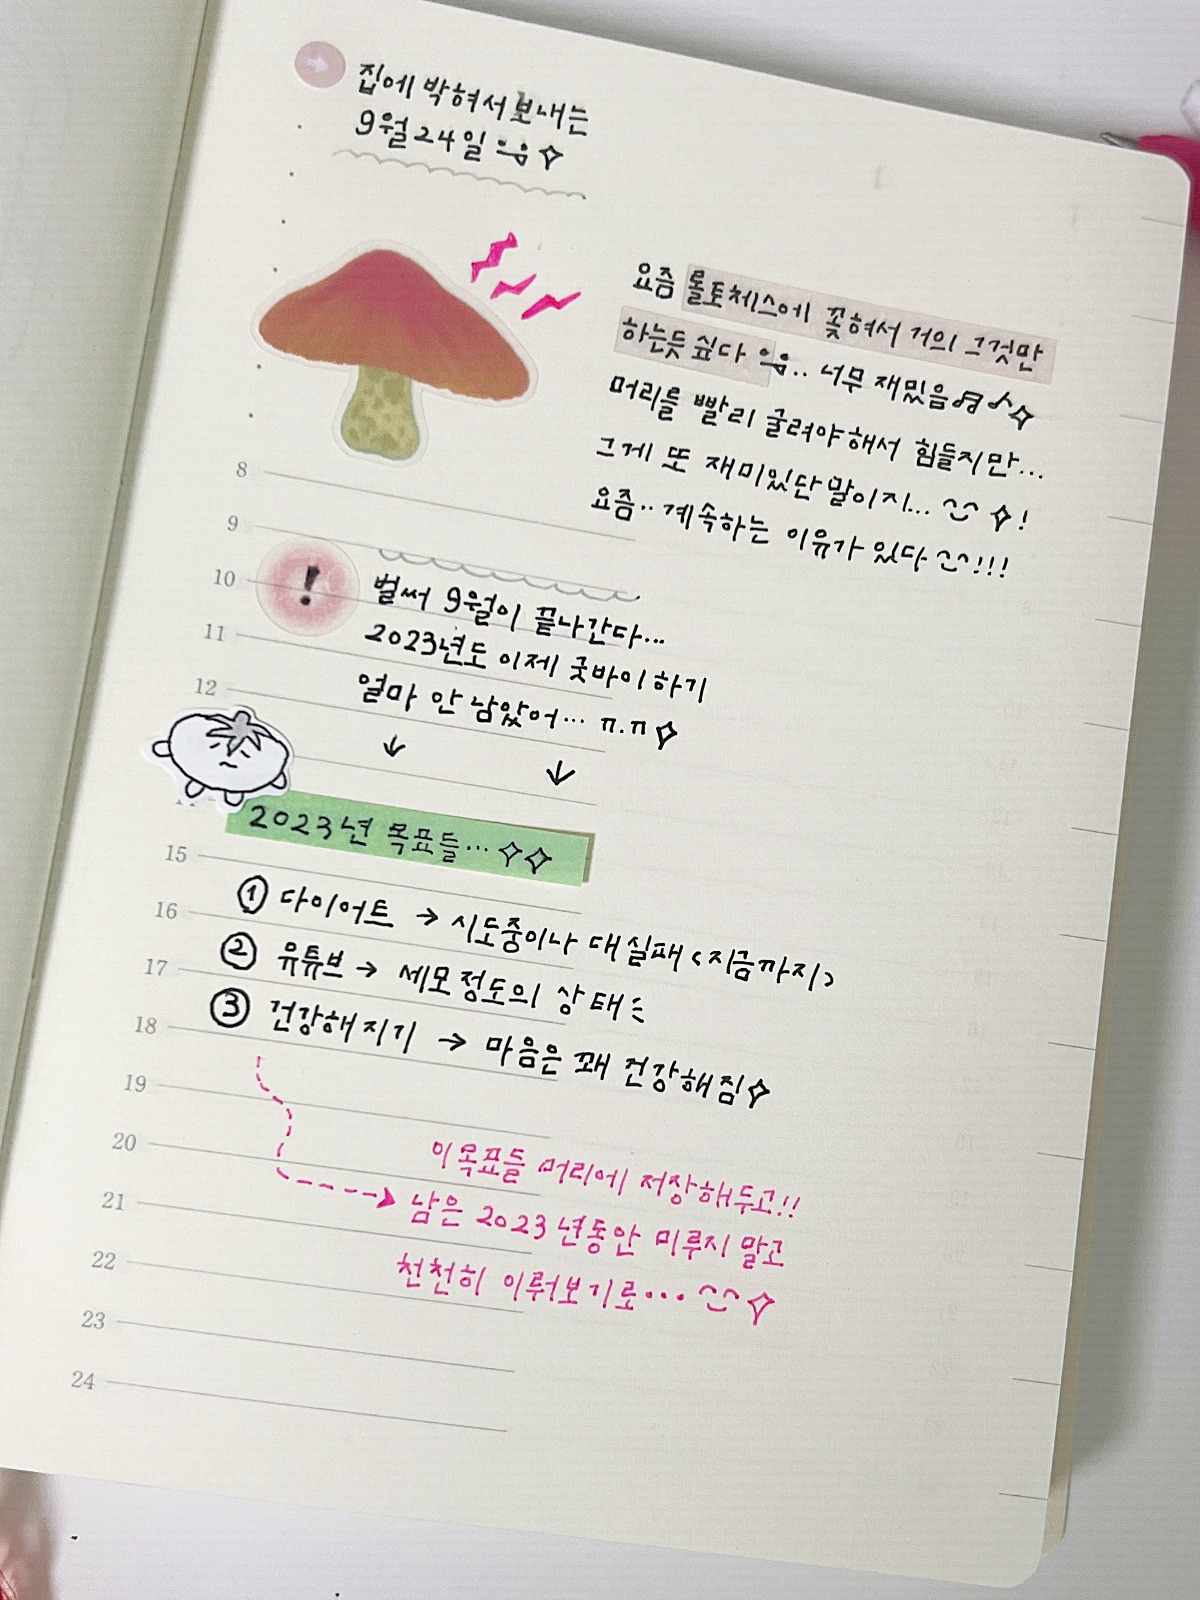 집에 박혀서 보내는
9월 24일
요즘 롤토체스에 꽂혀서 거의 그것만
하는듯 싶다 .. 너무 재밌음♬♪✧
머리를 빨리 굴려야해서 힘들지만...
그게 또 재미있단말이지... ✧!
요즘.. 계속하는 이유가 있다 !!!
8
9
10
!
벌써 9월이 끝나간다...
11
2023년도 이제 굿바이하기
12
얼마 안 남았어... ㅠ.ㅠ✧
↓ ↓
2023년 목표들... ✧✧
15
① 다이어트 → 시도중이나 대실패 <지금까지>
16
② 유튜브 → 세모정도의 상태
17
③ 건강해지기 → 마음은 꽤 건강해짐✧
18
19
20
이목표들 머리에 저장해두고!!
21
남은 2023년동안 미루지 말고
22
천천히 이뤄보기로... ✧
23
24